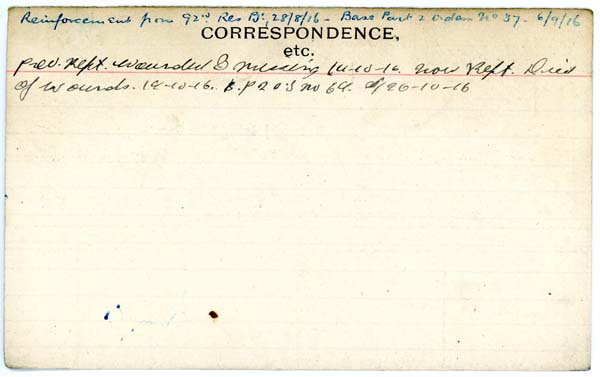 Reinforcement from 92nd Res Bn, 28/8/16 - Base Part 2 Orders No 37 - 6/9/16
CORRESPONDENCE,
etc.
Prev. Rept. Wounded & missing 14-10-16. now Rept. Died
of wounds. 14-10-16. B.P 2 O's No 69. d/20-10-16